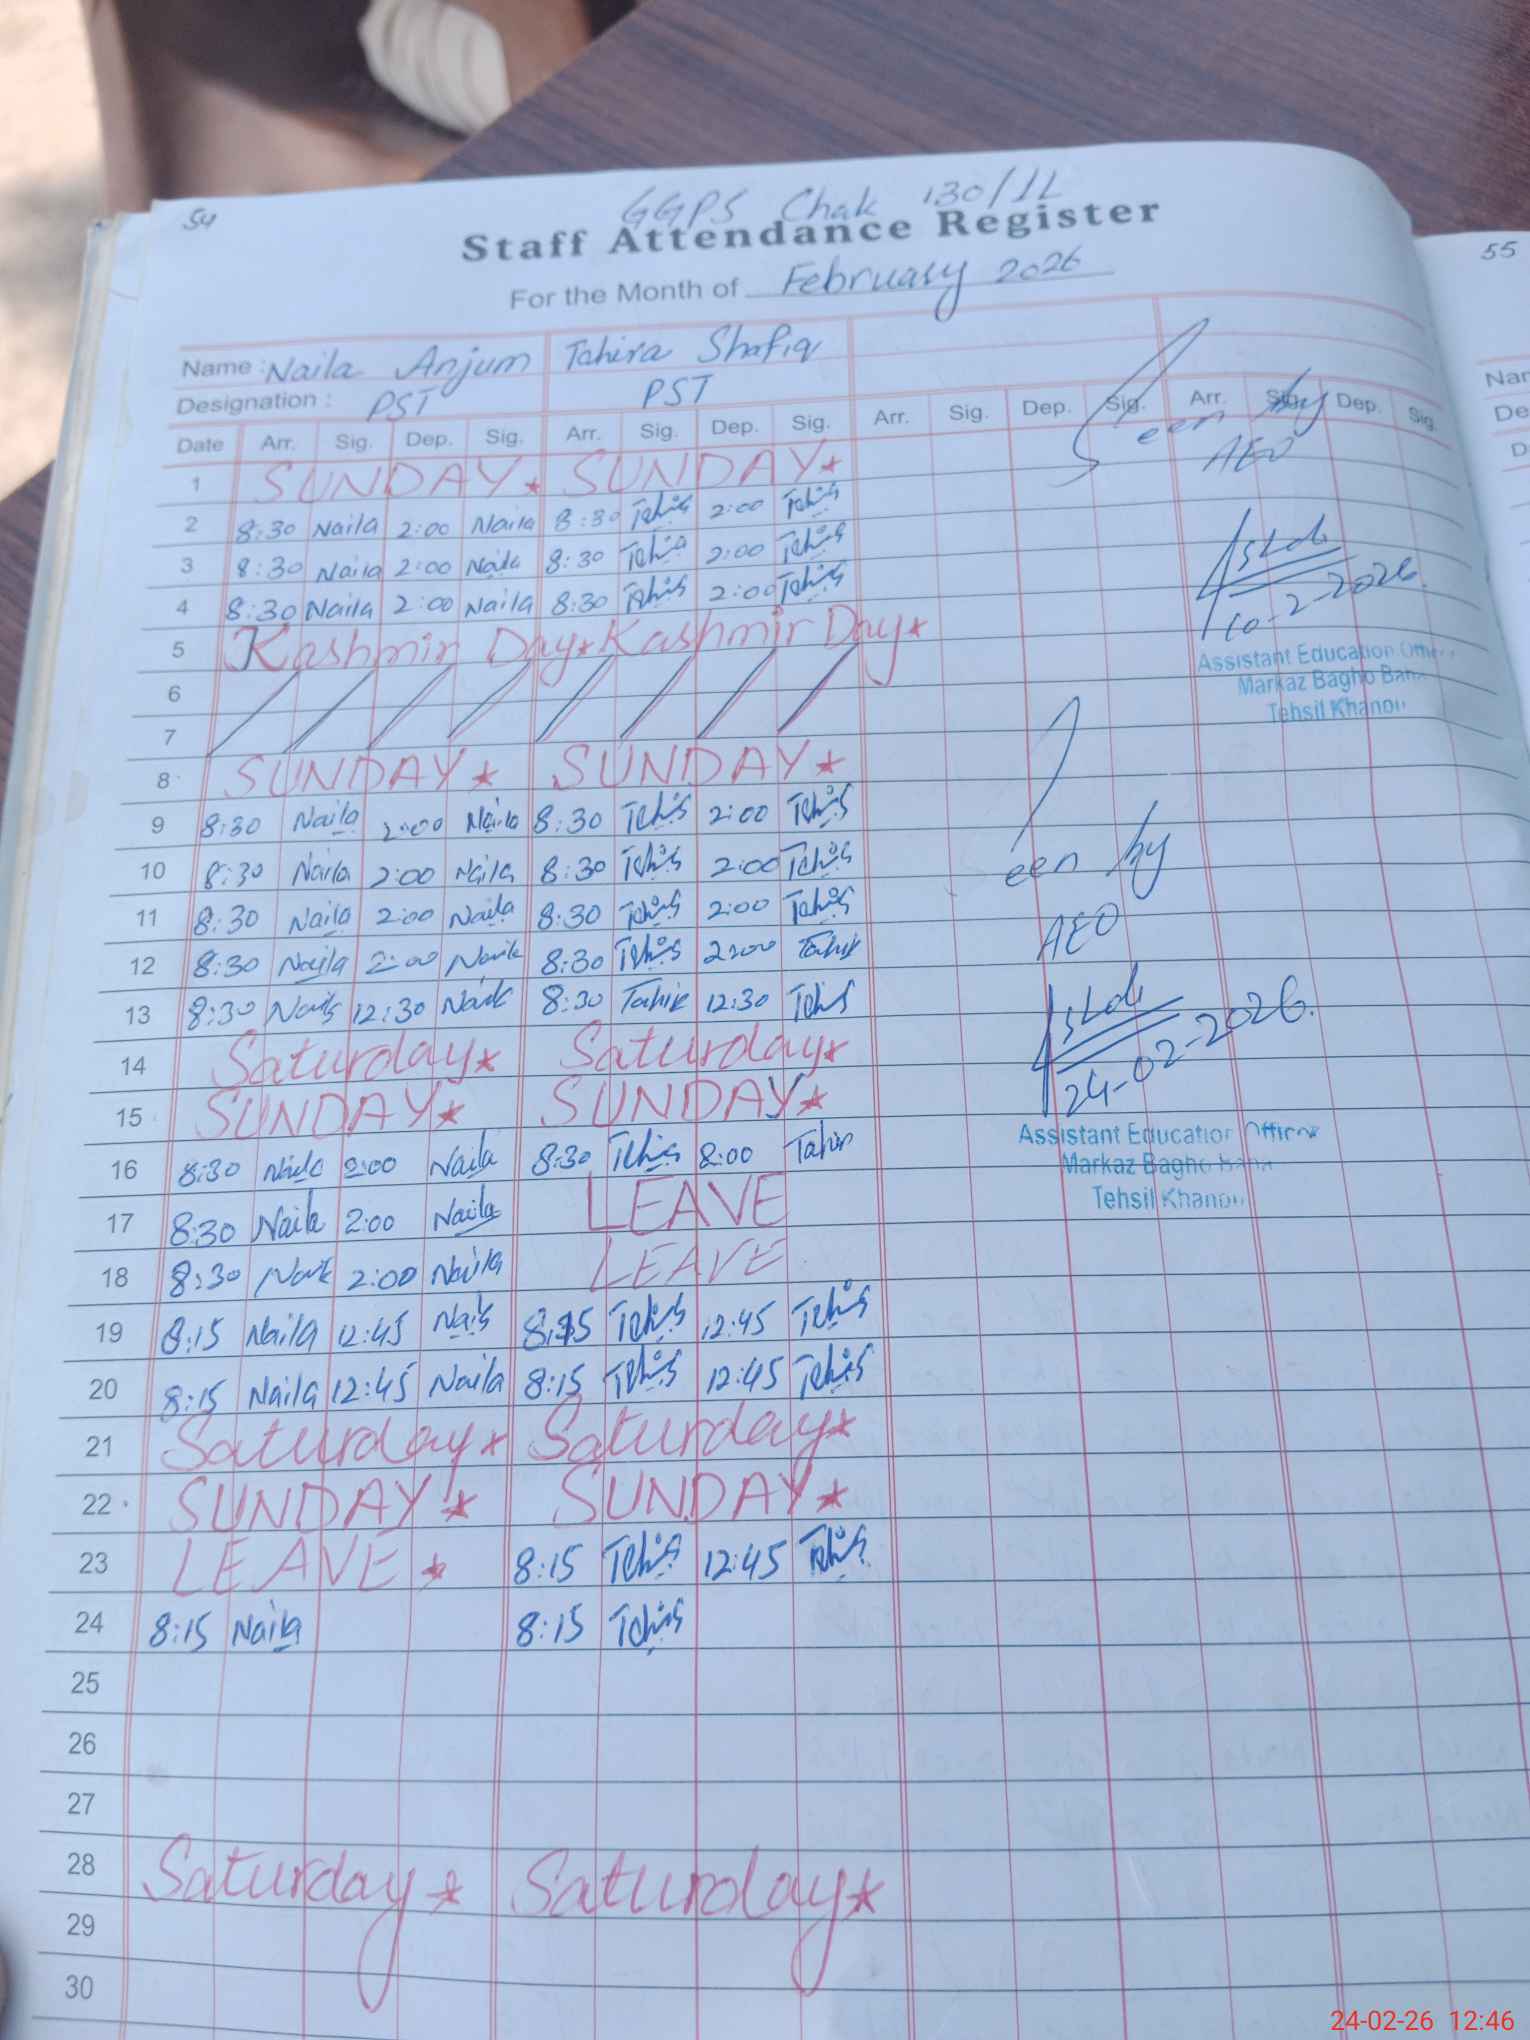 54
GGPS Chak 130/1L
Staff Attendance Register
For the Month of February 2026
55
Name : Naila Anjum Tahira Shafiq
Designation : PST PST
Date Arr. Sig. Dep. Sig. Arr. Sig. Dep. Sig. Arr. Sig. Dep. Sig. Arr. Sig. Dep. Sig.
Seen by
AEO
1 SUNDAY SUNDAY
2 8:30 Naila 2:00 Naila 8:30 2:00
3 8:30 Naila 2:00 Naila 8:30 2:00
4 8:30 Naila 2:00 Naila 8:30 2:00
10-2-2026
5 Kashmir Day Kashmir Day
Assistant Education Officer
Markaz Bagho Bah
Tehsil
6
7
8 SUNDAY SUNDAY
9 8:30 Naila 2:00 Naila 8:30 2:00
10 8:30 Naila 2:00 Naila 8:30 2:00
Seen by
11 8:30 Naila 2:00 Naila 8:30 2:00
AEO
12 8:30 Naila 2:00 Naila 8:30 2:00
13 8:30 Naila 12:30 Naila 8:30 12:30
14 Saturday Saturday
24-02-2026.
15 SUNDAY SUNDAY
Assistant Education Officer
Markaz Bagho
Tehsil
16 8:30 Naila 2:00 Naila 8:30 2:00
17 8:30 Naila 2:00 Naila LEAVE
18 8:30 Naila 2:00 Naila LEAVE
19 8:15 Naila 12:45 Naila 8:15 12:45
20 8:15 Naila 12:45 Naila 8:15 12:45
21 Saturday Saturday
22 SUNDAY SUNDAY
23 LEAVE 8:15 12:45
24 8:15 Naila 8:15
25
26
27
28 Saturday Saturday
29
30
24-02-26 12:46